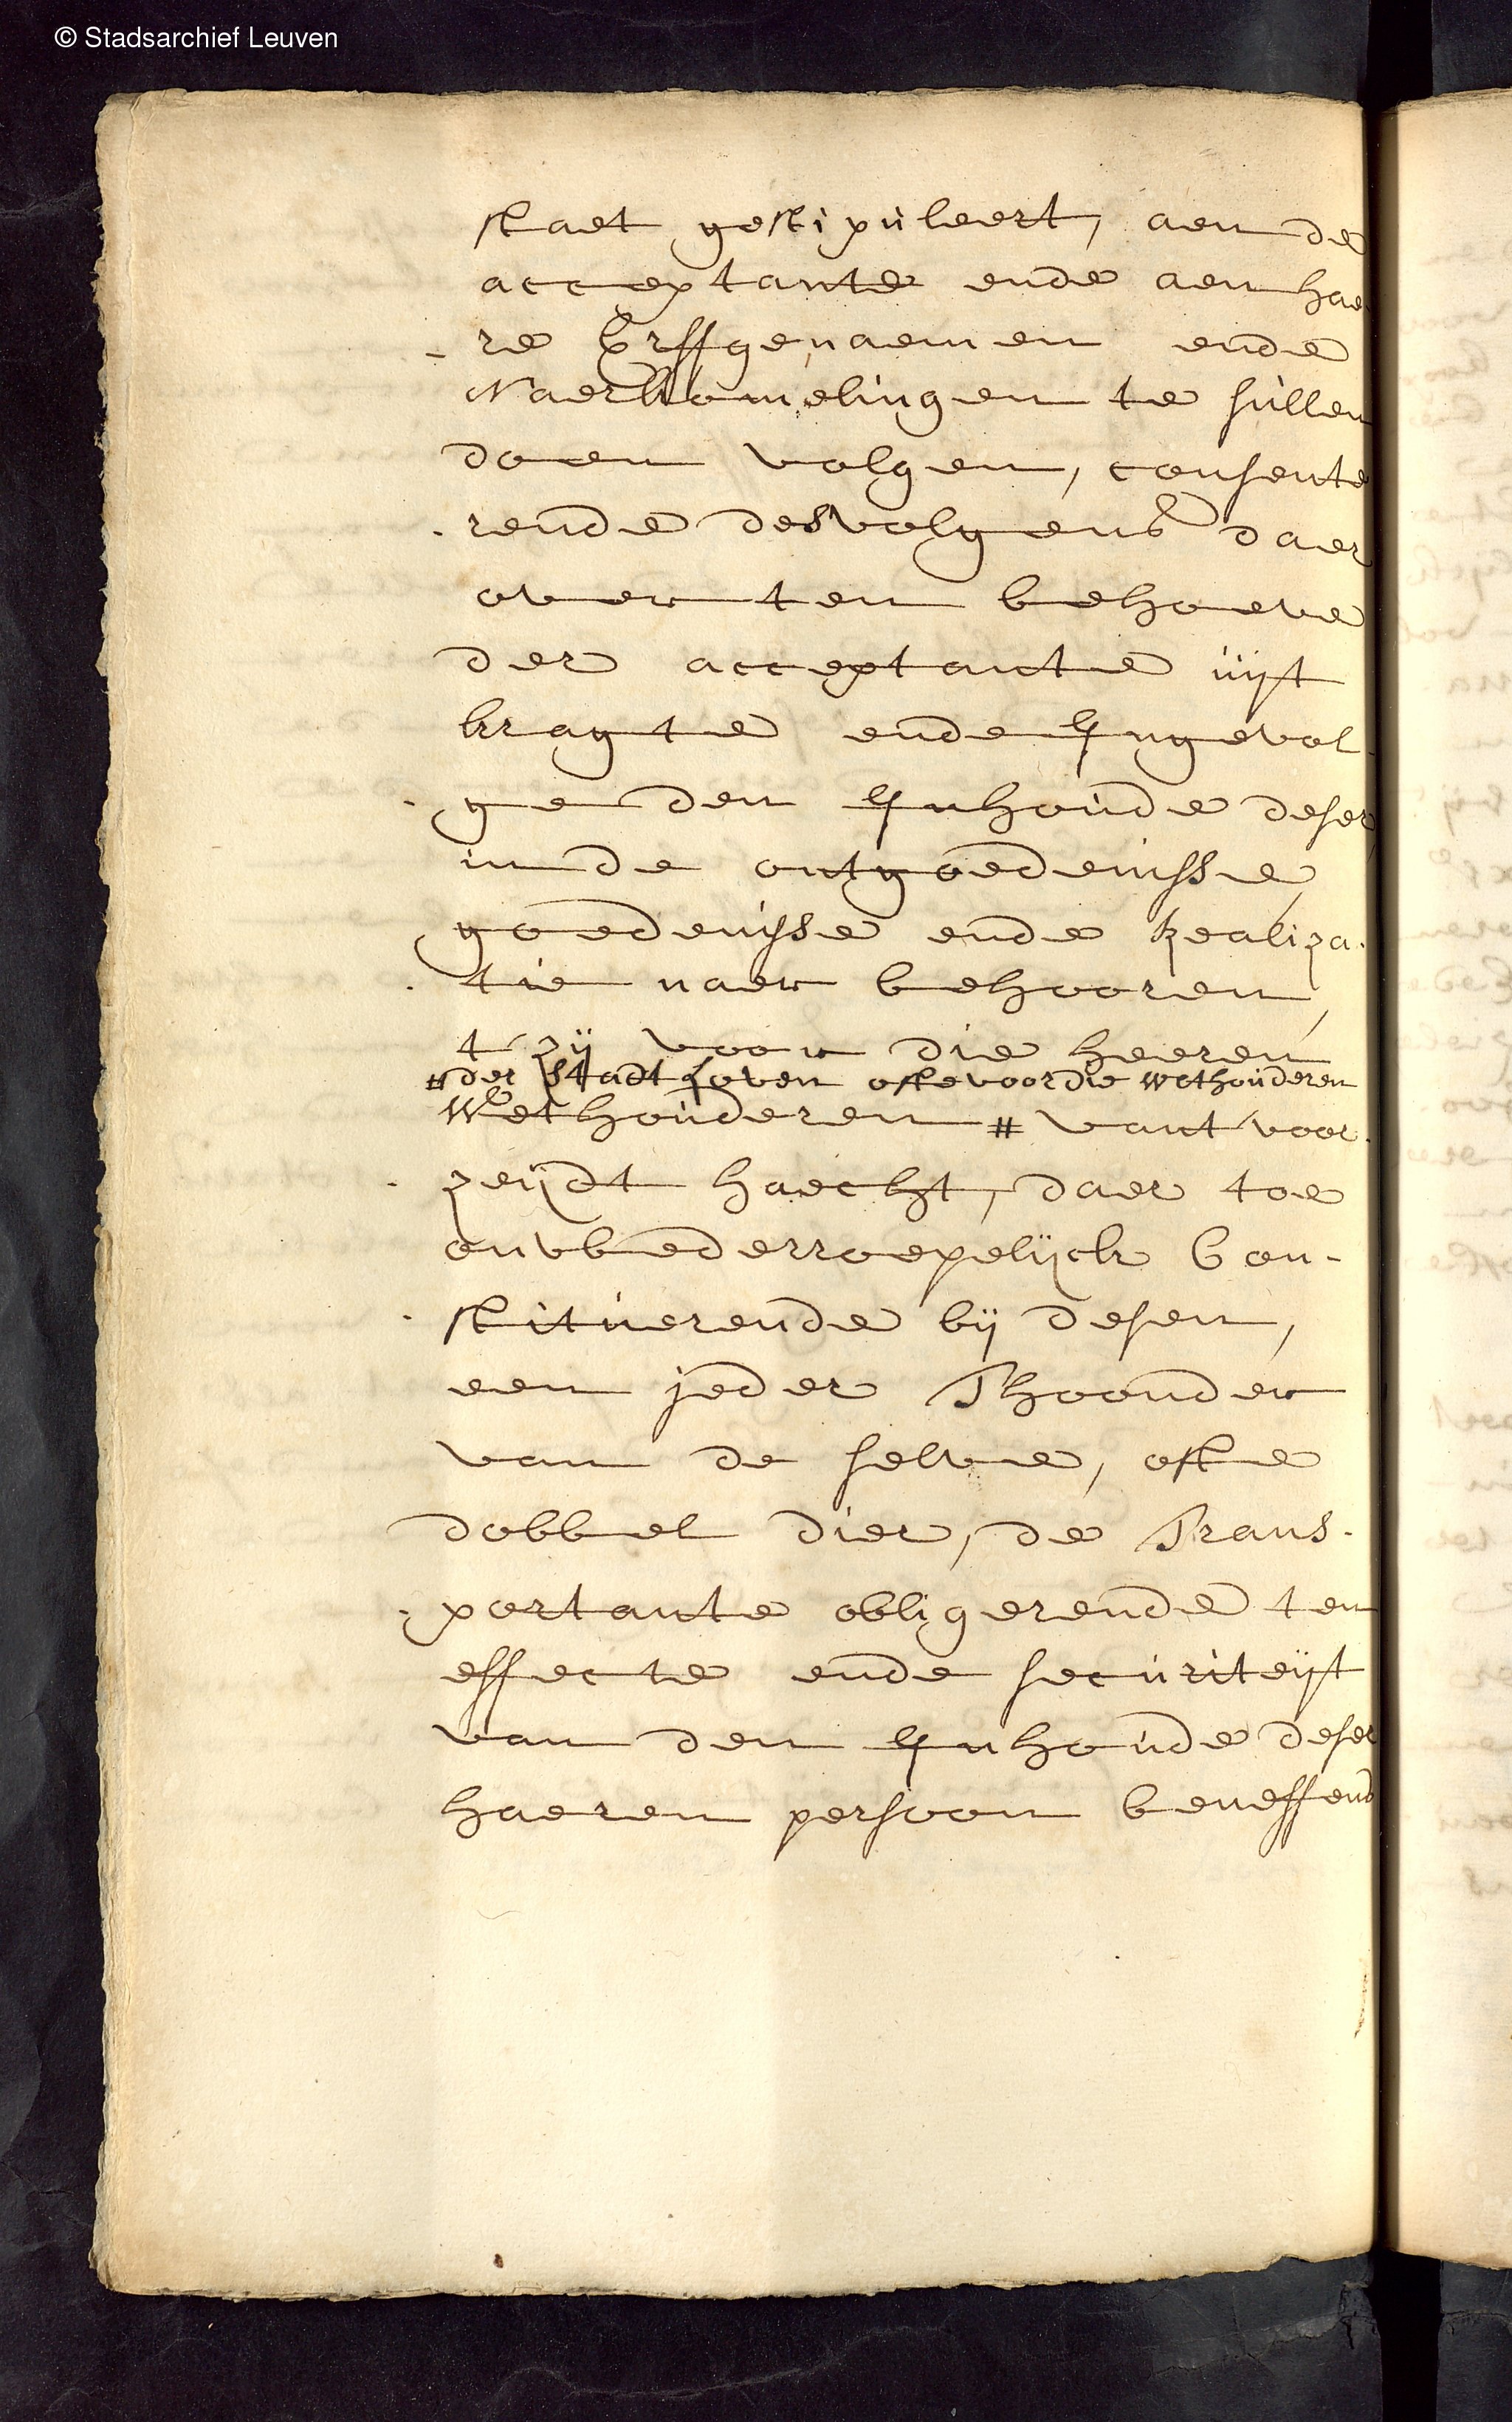 © Stadsarchief Leuven
staet gestipuleert, aen de
acceptante ende aen hae
- re Erffgenaemen ende
Naerkomelingen te sullen
doen volgen, consente
- rende desvolgens daer
over ten behoeve
der acceptante uijt
kragte ende Yngevol-
- ge den Ynhoude deser
in de ontgoedenisse,
goedenisse ende Realiza-
- tie naer behooren,
t'zij voor die heeren
# der Stadt Loven ofte voor die wethouderen
Wethouderen # vant voor-
- zeijdt haecht, daer toe
onwederroepelijck Con-
- stituerende bij desen,
een jeder Thoonder
van de selve, ofte
dobbel dier, de Trans-
- portante obligerende ten
effecte ende securiteijt
van den Ynhoude deser
haeren persoon beneffens